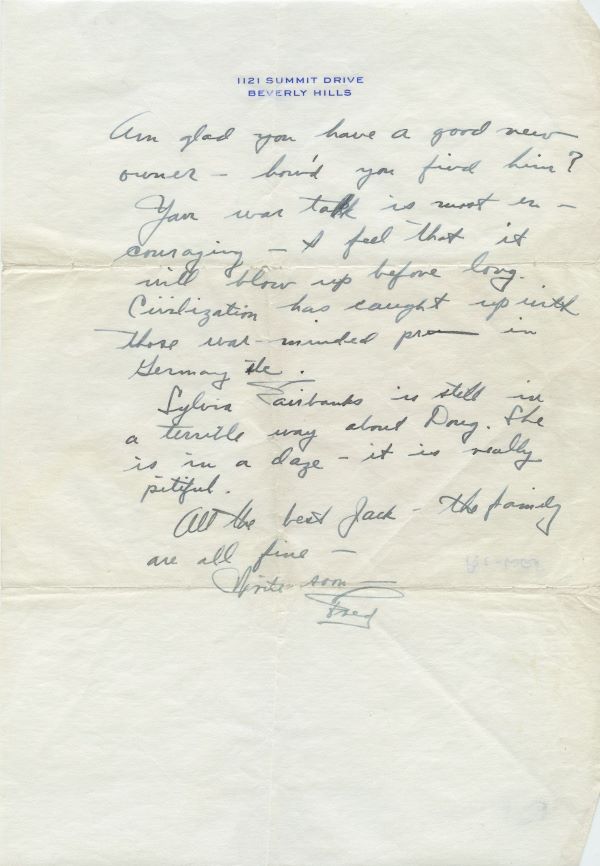 1121 SUMMIT DRIVE
BEVERLY HILLS
Am glad you have a good new
owner – how'd you find him?
Your war talk is most en –
couraging – I feel that it
will blow up before long.
Civilization has caught up with
those war-minded in
Germany etc.
Sylvia Fairbanks is still in
a terrible way about Doug. She
is in a daze – it is really
pitiful.
All the best Jack – the family
are all fine –
Write soon –
Fred